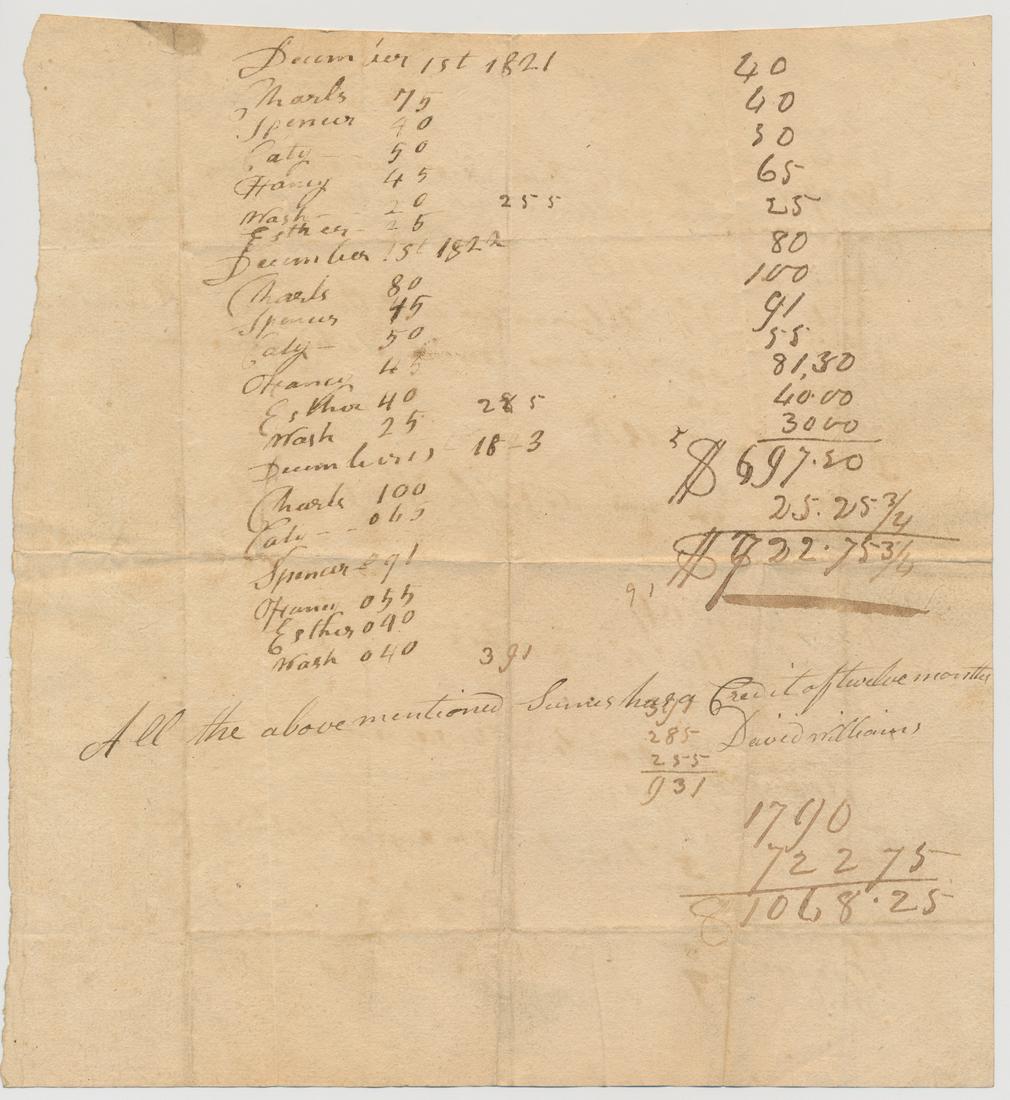 December 1st 1821
Charls 75
Spencer 40
Caty 50
Hancy 45
Wash 20 255
Esther 25
December 1st 1822
Charls 80
Spencer 45
Caty 50
Hancy 45
Esther 40 285
Wash 25
December 1s 18-3
Charls 100
Caty 065
Spencer 91
Hancy 055
Esther 040
Wash 040 391
40
40
50
65
25
80
100
91
55
81,50
40.00
3000
5
$ 697.50
25.25 3/4
$ 722.75 3/4
91
All the above mentioned Sumes have Credit of twelve months
David williams
399
285
255
931
1790
722 75
$ 1068.25